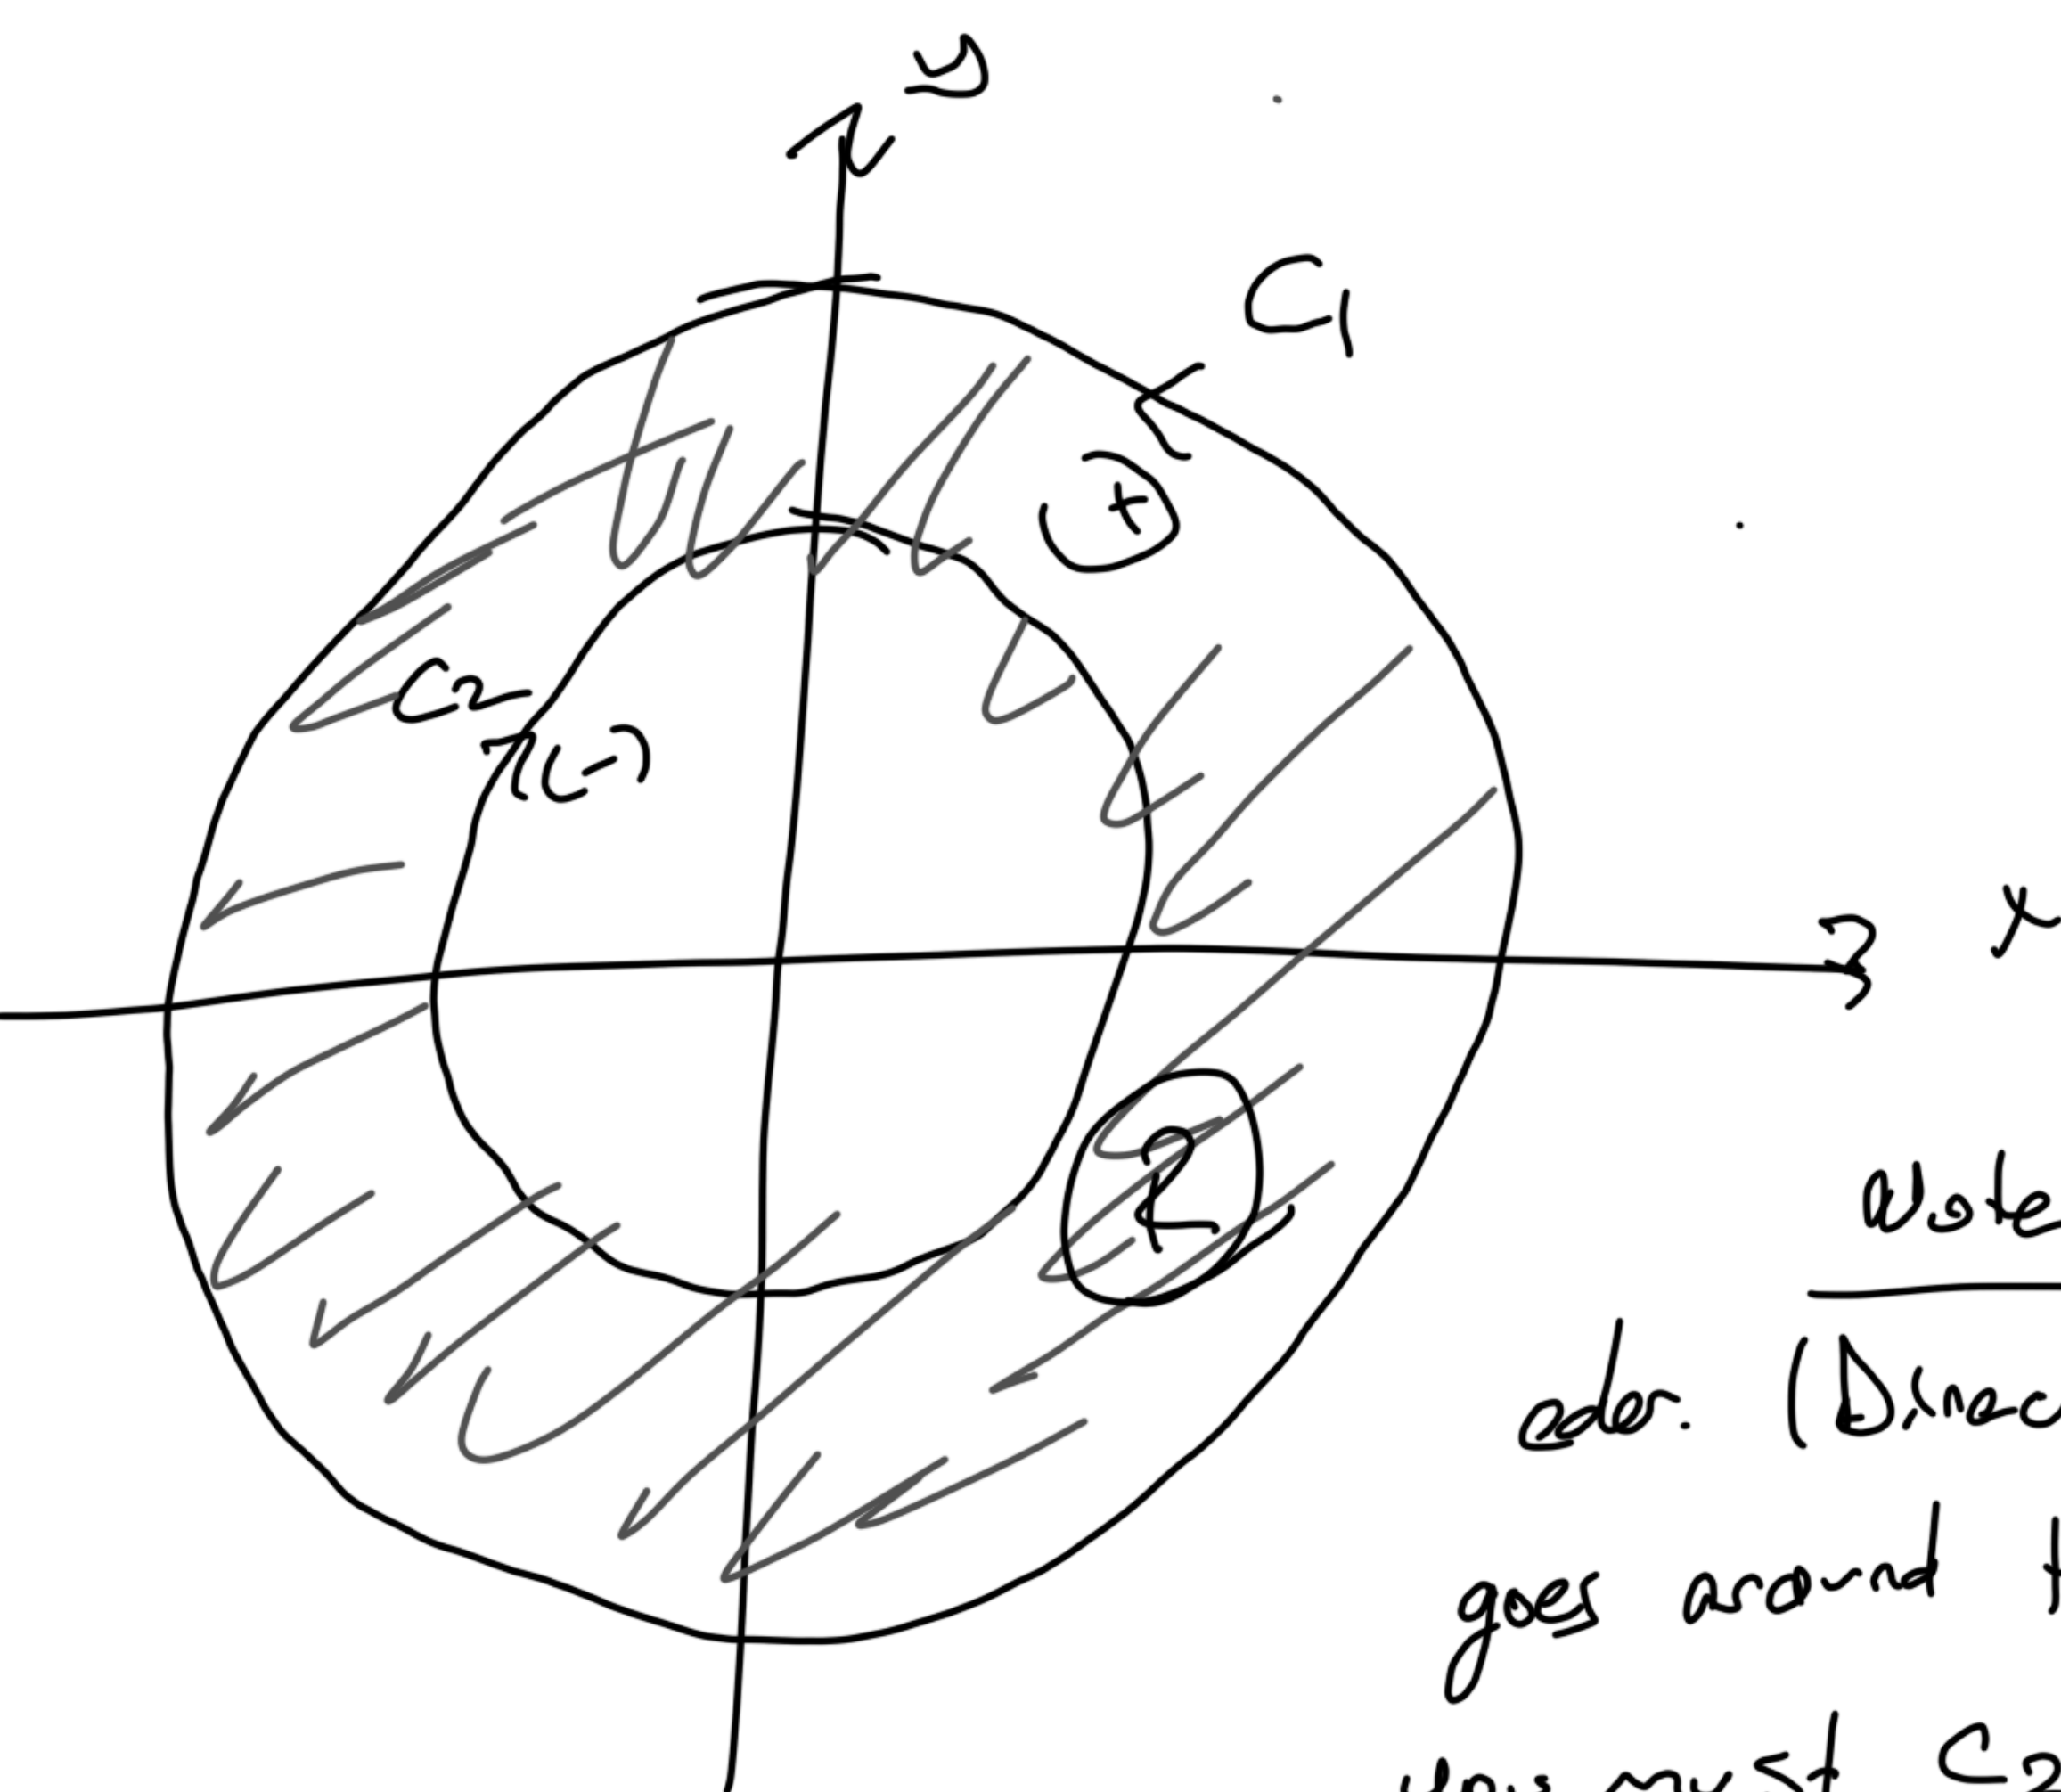 y
C1
(+)
C2
(-)
x
R
Note
order. (Direc
goes around t
must C2